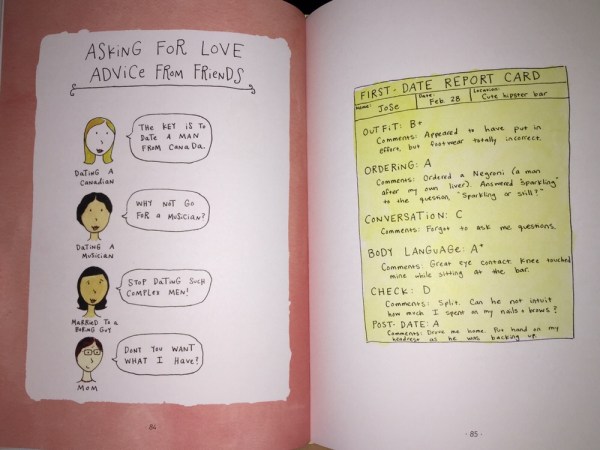 ASKING FOR LOVE
ADVICE FROM FRIENDS
THE KEY IS TO
DATE A MAN
FROM CANADA.
DATING A
CANADIAN
WHY NOT GO
FOR A MUSICIAN?
DATING A
MUSICIAN
STOP DATING SUCH
COMPLEX MEN!
MARRIED TO A
BORING GUY
DONT YOU WANT
WHAT I HAVE?
MOM
84
FIRST-DATE REPORT CARD
Name: JOSE
Date: Feb 28
Location: Cute hipster bar
OUTFIT: B+
Comments: Appeared to have put in
effort, but footwear totally incorrect.
ORDERING: A
Comments: Ordered a Negroni (a man
after my own liver). Answered "sparkling"
to the question, "Sparkling or still?"
CONVERSATION: C
Comments: Forgot to ask me questions.
BODY LANGUAGE: A+
Comments: Great eye contact. Knee touched
mine while sitting at the bar.
CHECK: D
Comments: Split. Can he not intuit
how much I spent on my nails + brows?
POST-DATE: A
Comments: Drove me home. Put hand on my
headrest as he was backing up.
- 85 -